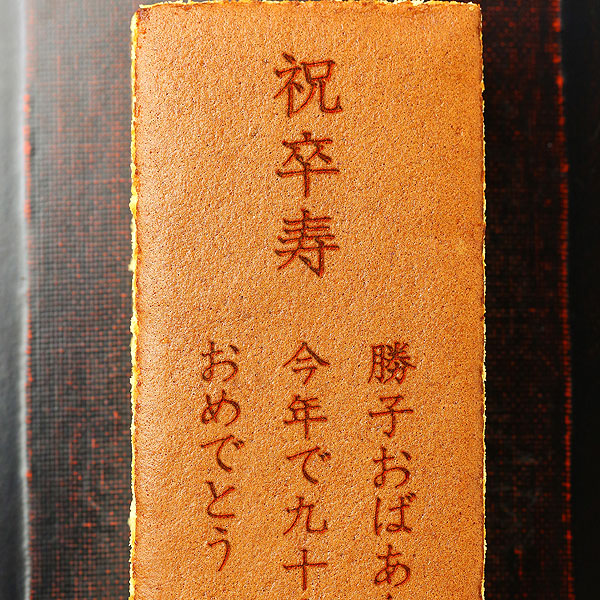 祝卒寿
勝子おばあ
今年で九十
おめでとう